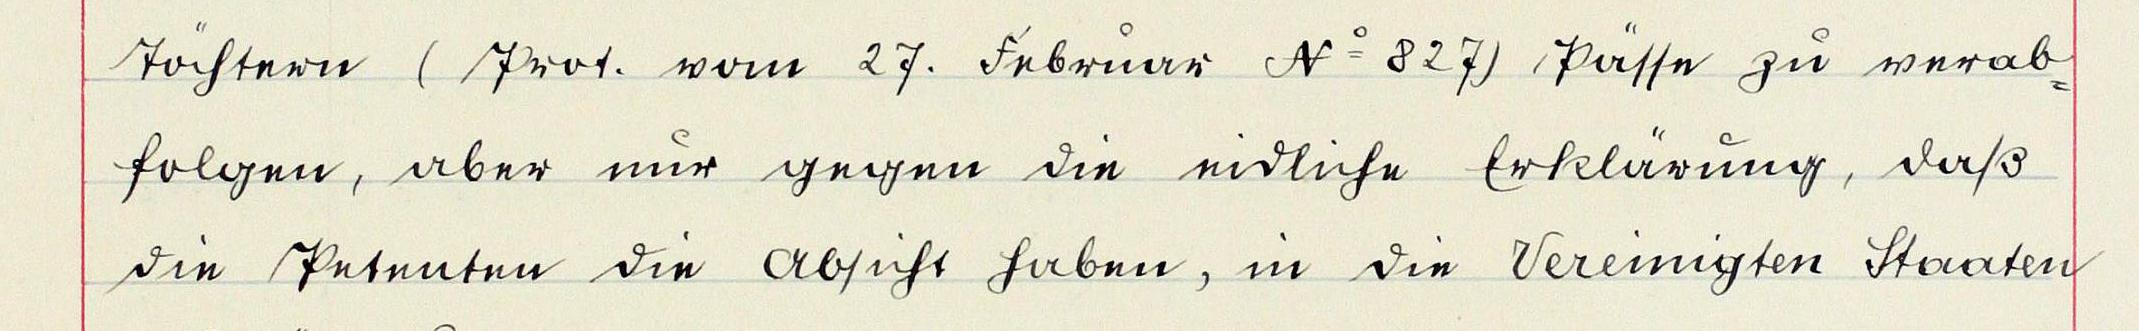 Töchtern (Prot. vom 27. Februar No 827) Pässe zu verab=
folgen, aber nur gegen die eidliche Erklärung, daß
die Petenten die Absicht haben, in die Vereinigten Staaten